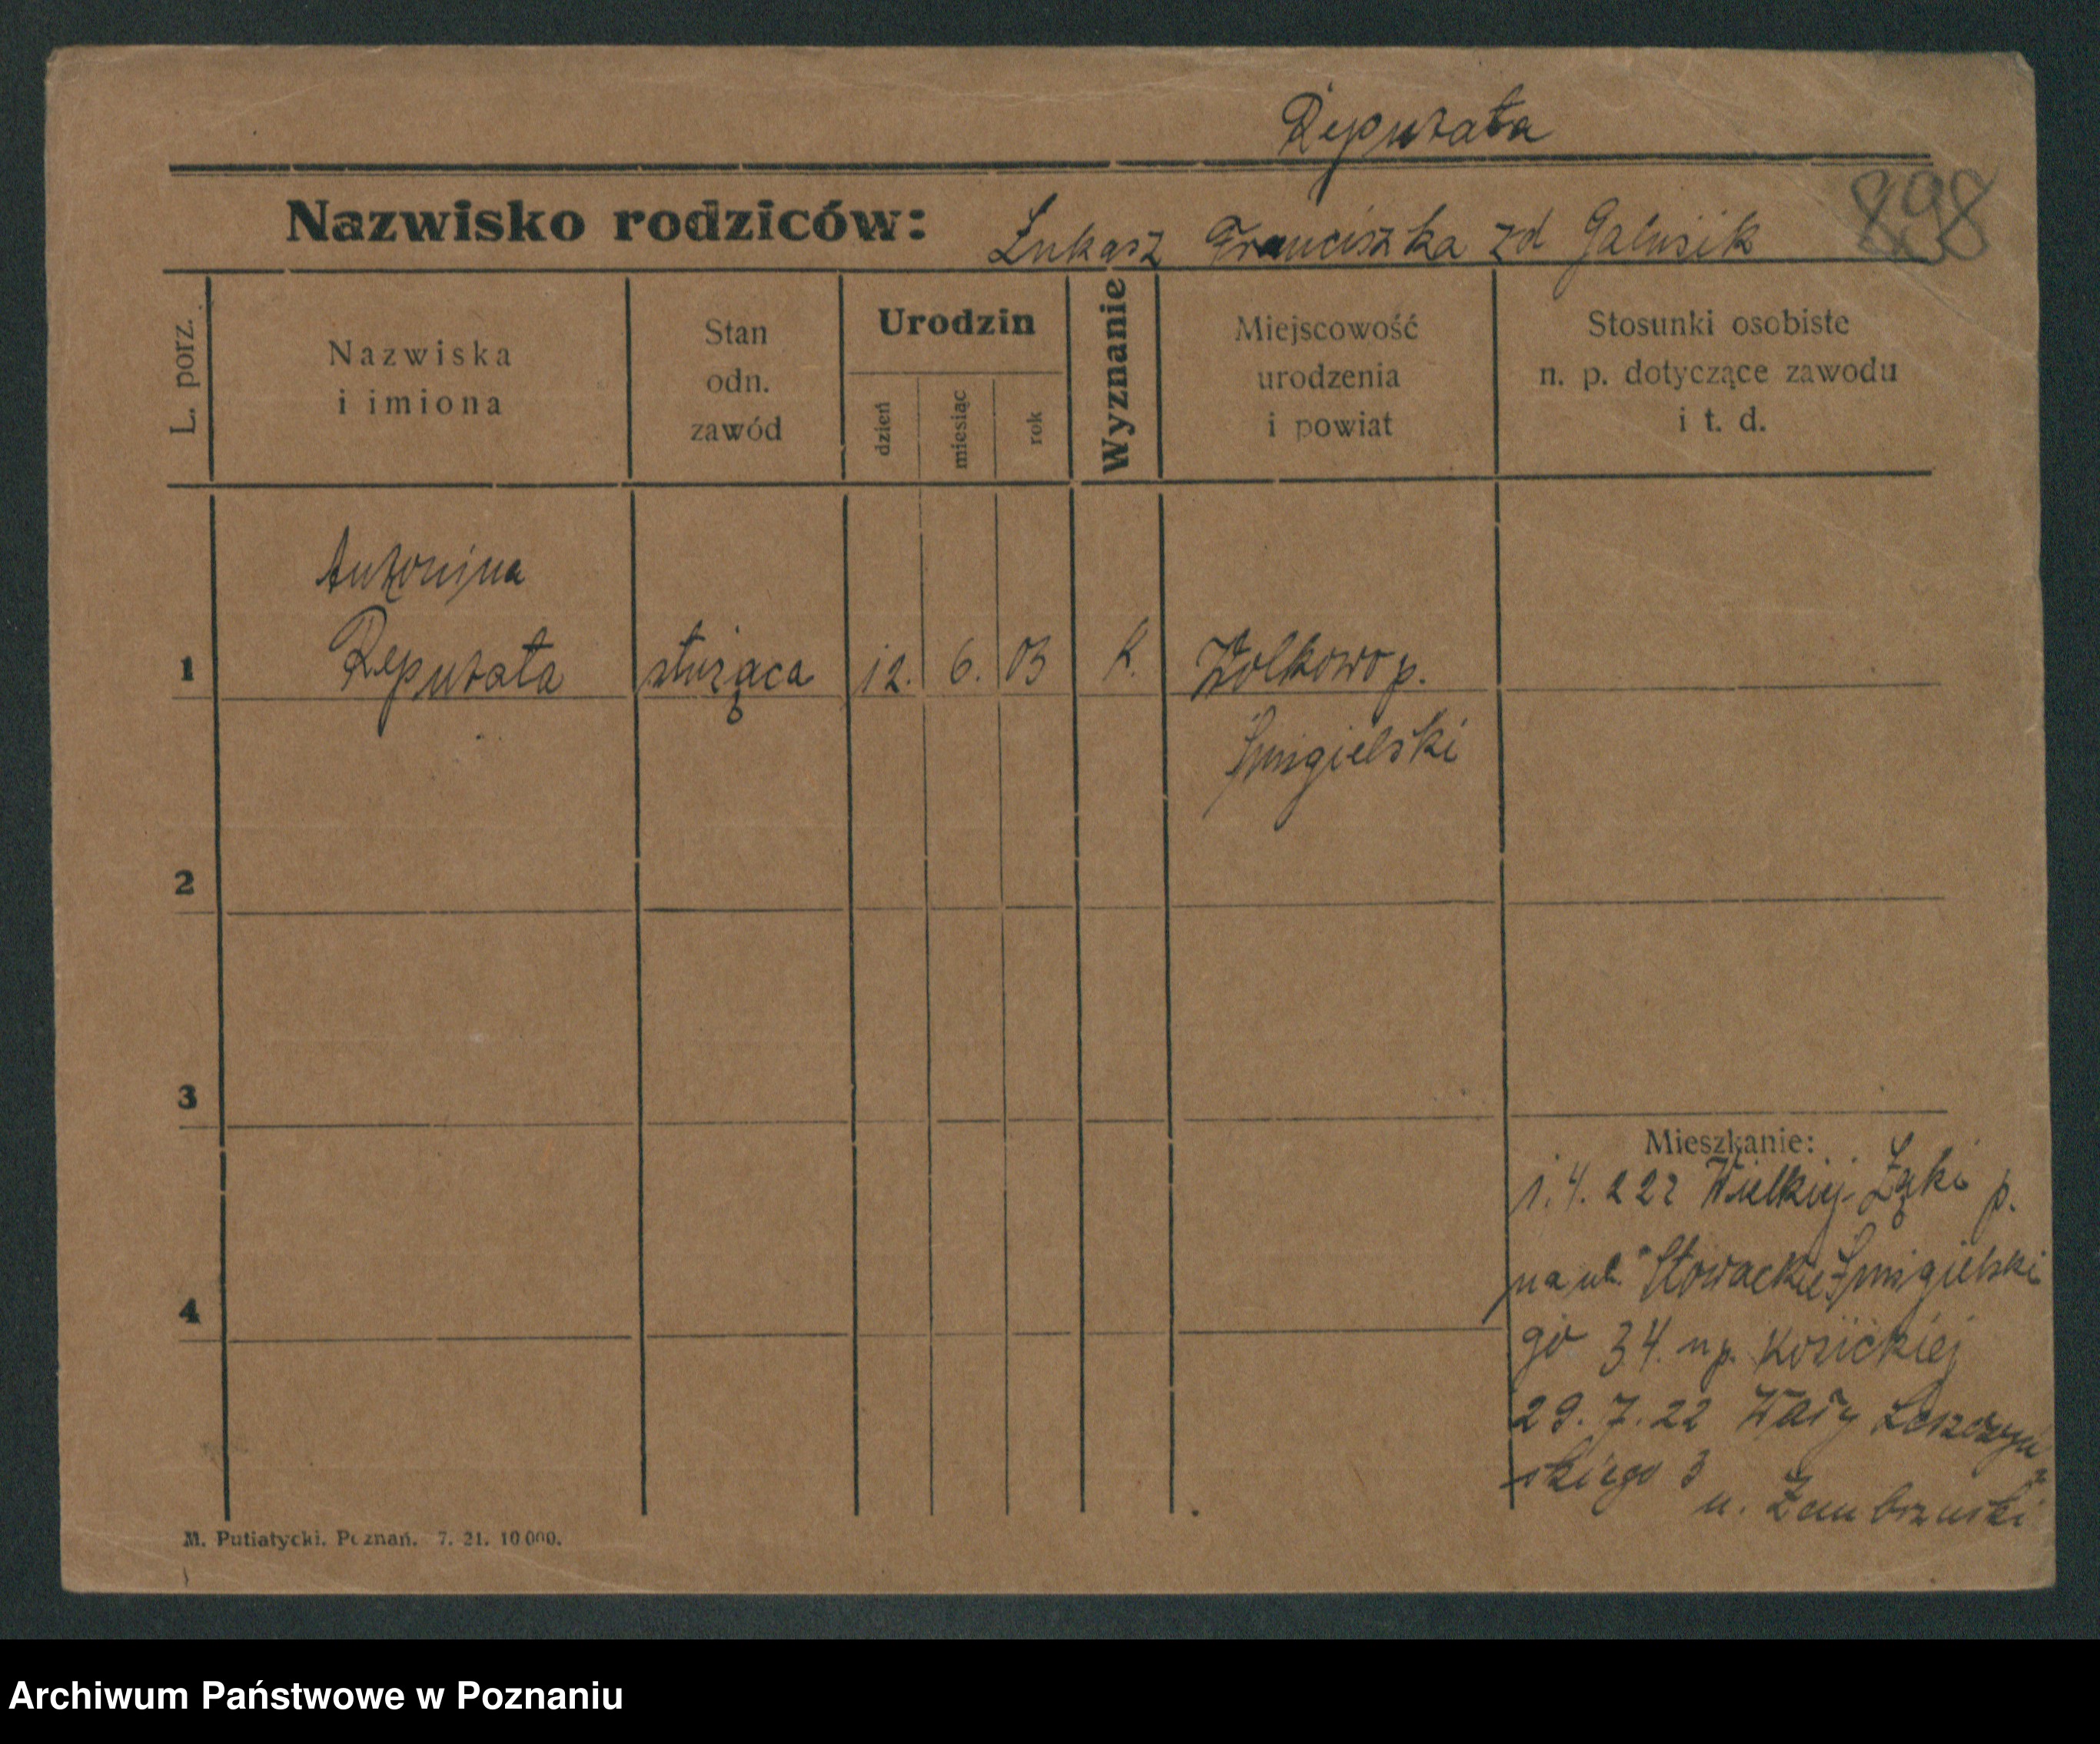 Reputata
Nazwisko rodziców: Łukasz Franciszka zd Galusik
898
L. porz.
Nazwiska
i imiona
Stan
odn.
zawód
Urodzin
dzień
miesiąc
rok
Wyznanie
Miejscowość
urodzenia
i powiat
Stosunki osobiste
n. p. dotyczące zawodu
i t. d.
Antonina
1 Reputata służąca 12. 6. 03 k. Wolkowo p.
Śmigielski
2
3
Mieszkanie:
1.4.222 Wielkiej Łąki p.
na ul. Słowackie Śmigielski
4
go 34. n p. Kosickiej
29.7.22 Wały Leszczyń
skiego 3
u.
M. Putiatycki. Poznań. 7. 21. 10 000.
Archiwum Państwowe w Poznaniu